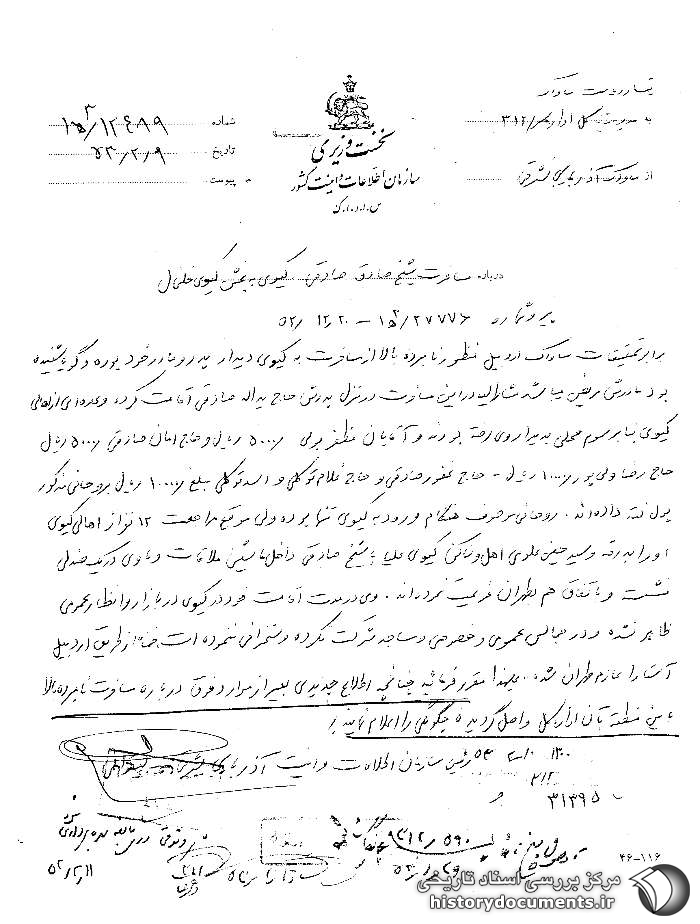 به مدیریت کل اداره سوم ۳۱۲
شماره ۱۲۴۹۹/۱۵ﻫ۳
نخست وزیری
تاریخ ۵۳/۲/۹
سازمان اطلاعات و امنیت کشور
از ساواک آذربایجان شرقی
پیوست
س.ا.و.ا.ک
درباره مسافرت شیخ صادق صادقی گیوی به بخش گیوی خلخال
پیرو شماره ۲۷۷۷۶/۱۵ﻫ۳ – ۵۲/۱۲/۲۰
برابر تحقیقات ساواک اردبیل منظور نامبرده بالا از مسافرت به گیوی دیدار پدر و مادر خود بوده و گویا شنیده
بود مادرش مریض میباشد مشارالیه در این مسافرت در منزل پدرش حاج یداله صادقی اقامت کرده و عده‌ای از اهالی
گیوی بنا بر رسوم محلی بدیدار وی رفته بودند و آقایان مظفر ۵۰۰۰ ریال و حاج امان صادقی ۵۰۰۰ ریال
حاج رضا ولی پور ۱۰۰۰۰ ریال - حاج غفور صادقی و حاج غلام توکلی و اسد توکلی مبلغ ۱۰۰۰۰ ریال بروحانی مذکور
پول نقد داده‌اند. روحانی موصوف هنگام ورود به گیوی تنها بوده ولی موقع مراجعت ۱۲ نفر از اهالی گیوی
او را بدرقه و سید حسین علوی اهل و ساکن گیوی علیا با شیخ صادقی داخل ماشین ملاقات و با وی در یک صندلی
نشست و باتفاق هم بطهران عزیمت نموده‌اند. وی در مدت اقامت خود در گیوی در بازار و انظار عمومی
ظاهر نشده و در مجالس عمومی و خصوصی و مساجد شرکت نکرده و سخنرانی ننموده است ضمناً از طریق اردبیل
آستارا عازم طهران شده. علیهذا مقرر فرمائید چنانچه اطلاع جدیدی بغیر از موارد فوق درباره مسافرت نامبرده بالا
باین منطقه بآن اداره کل واصل گردیده چگونگی را اعلام نمایند
رئیس سازمان اطلاعات و امنیت آذربایجان شرقی
۳۱۲
۳۱۳۹۵
۴۶-۱۱۶
مرکز بررسی اسناد تاریخی
historydocuments.ir